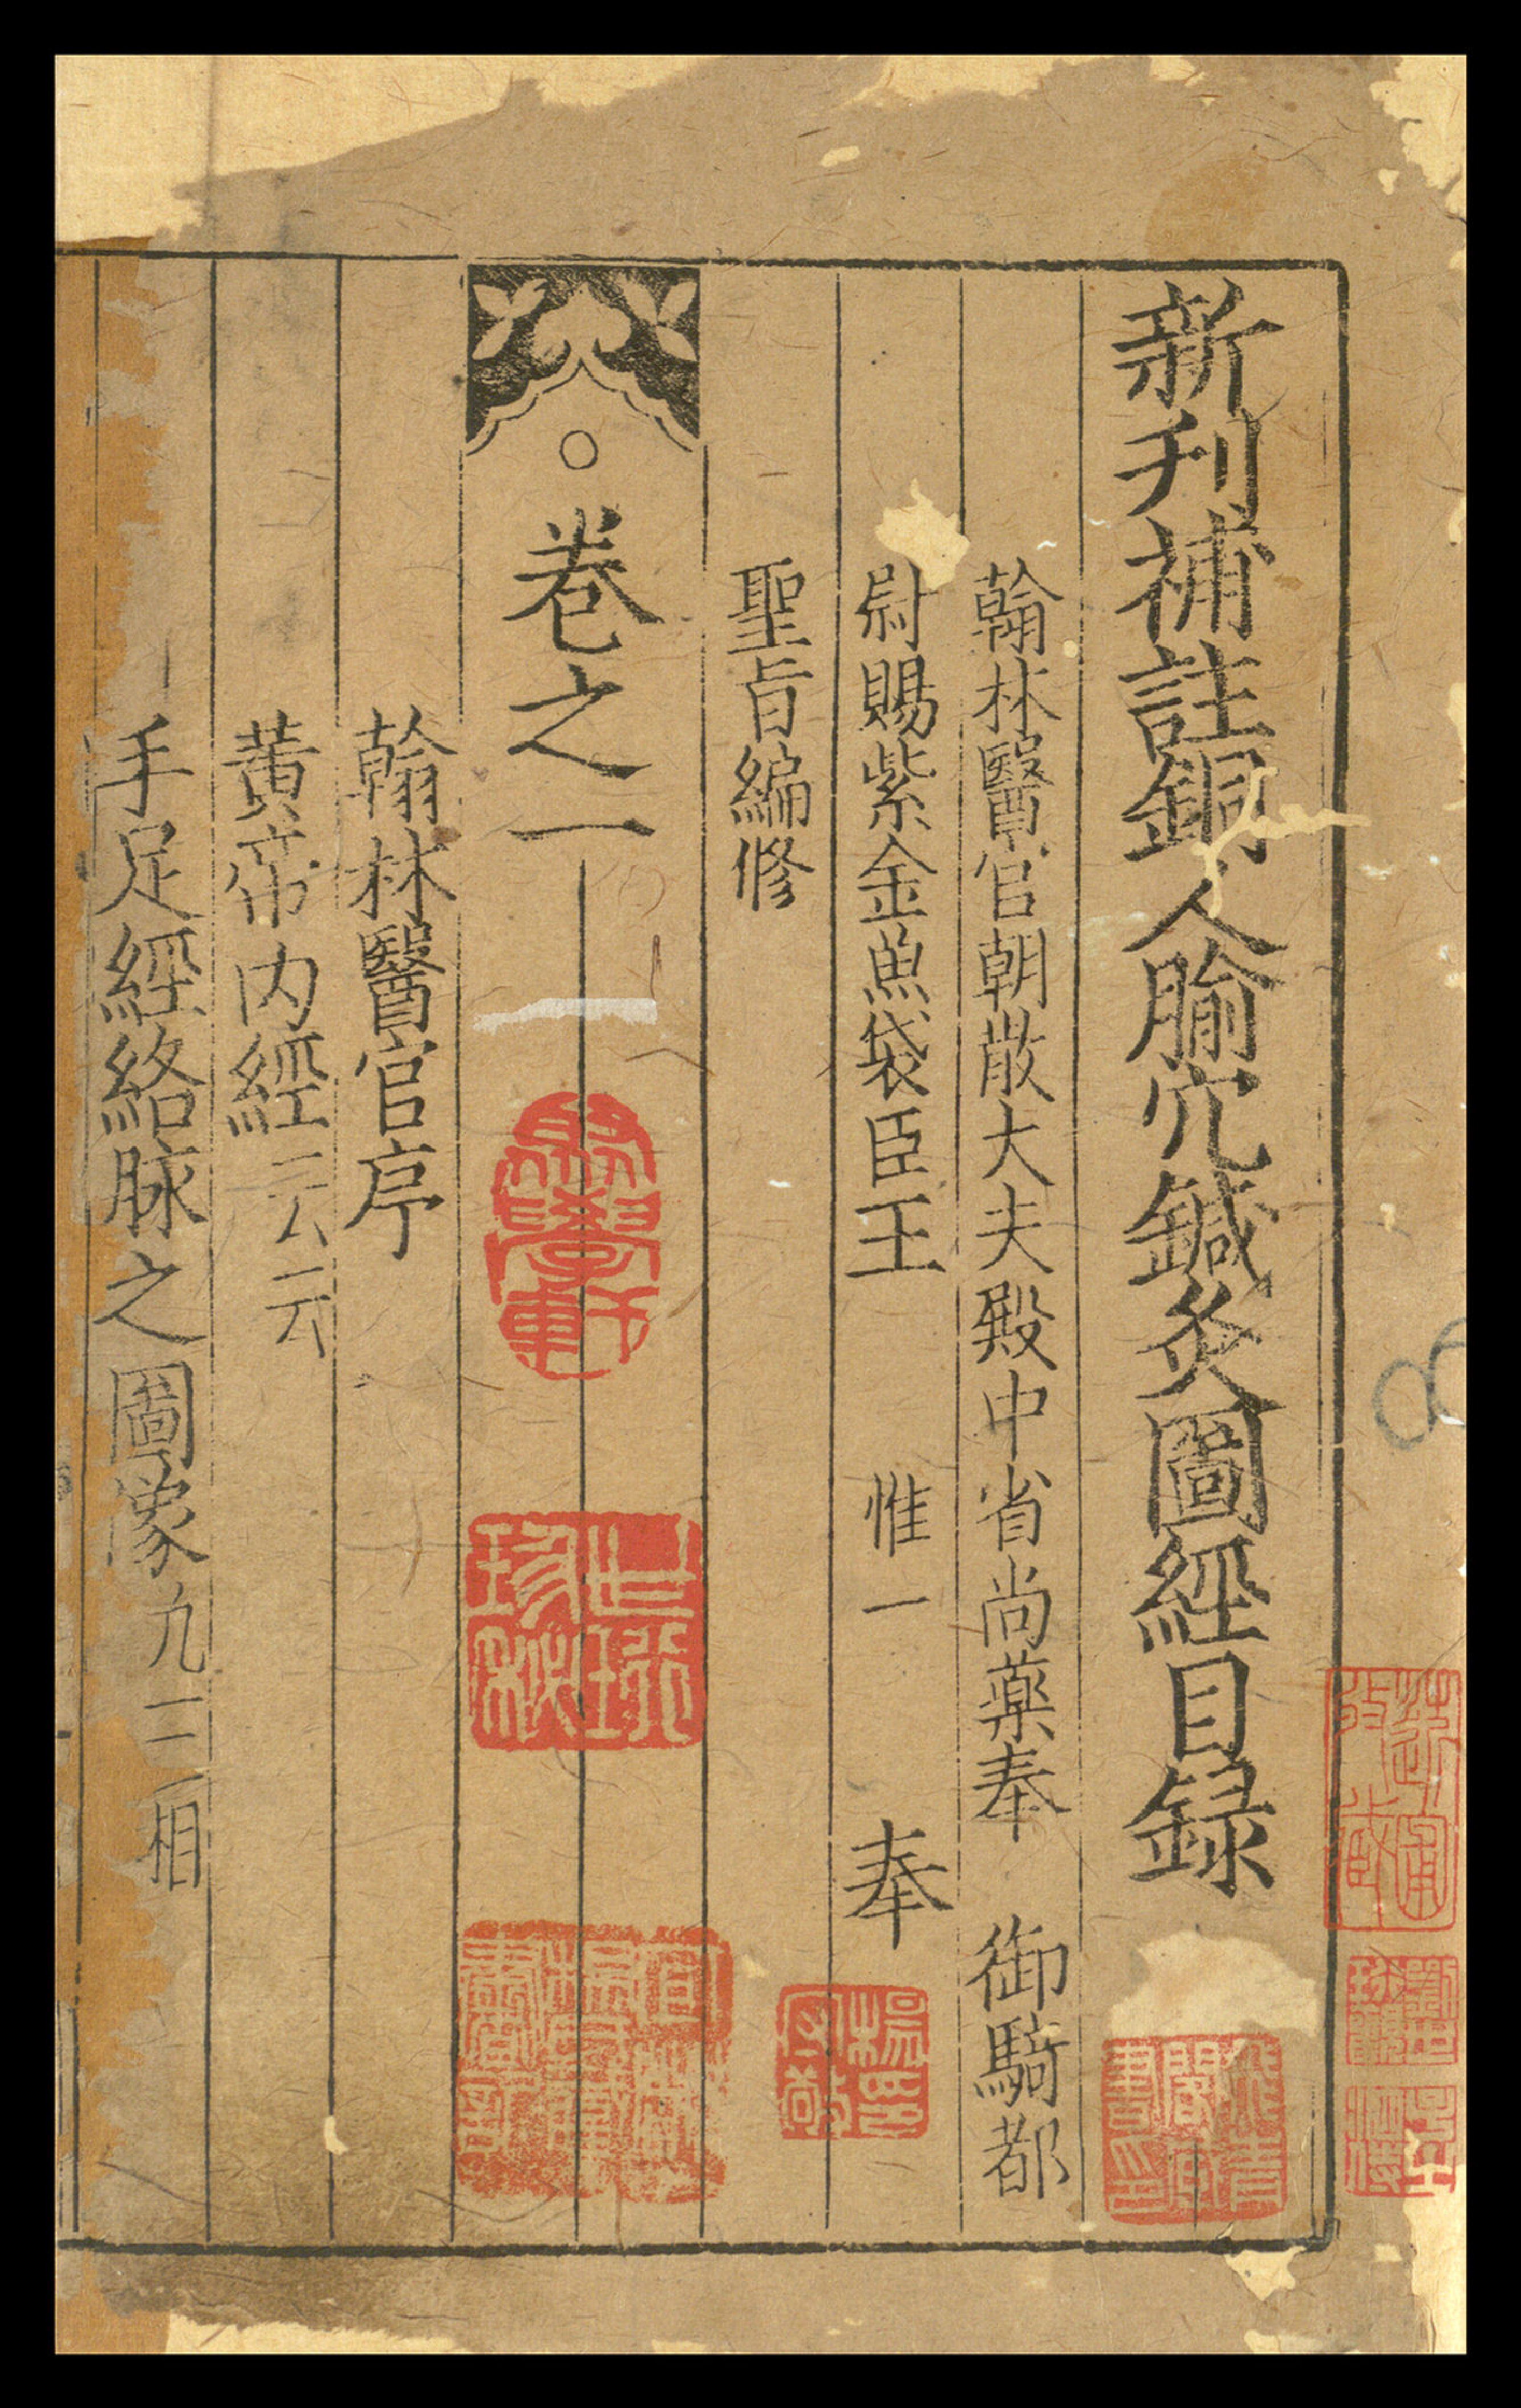 新刋補註銅人腧穴鍼灸圖經目録
翰林醫官朝散大夫殿中省尚藥奉御騎都
尉賜紫金魚袋臣王惟一奉
聖旨編修
○卷之一
翰林醫官序
黃帝內經云云
手足經絡脉之圖像九二相